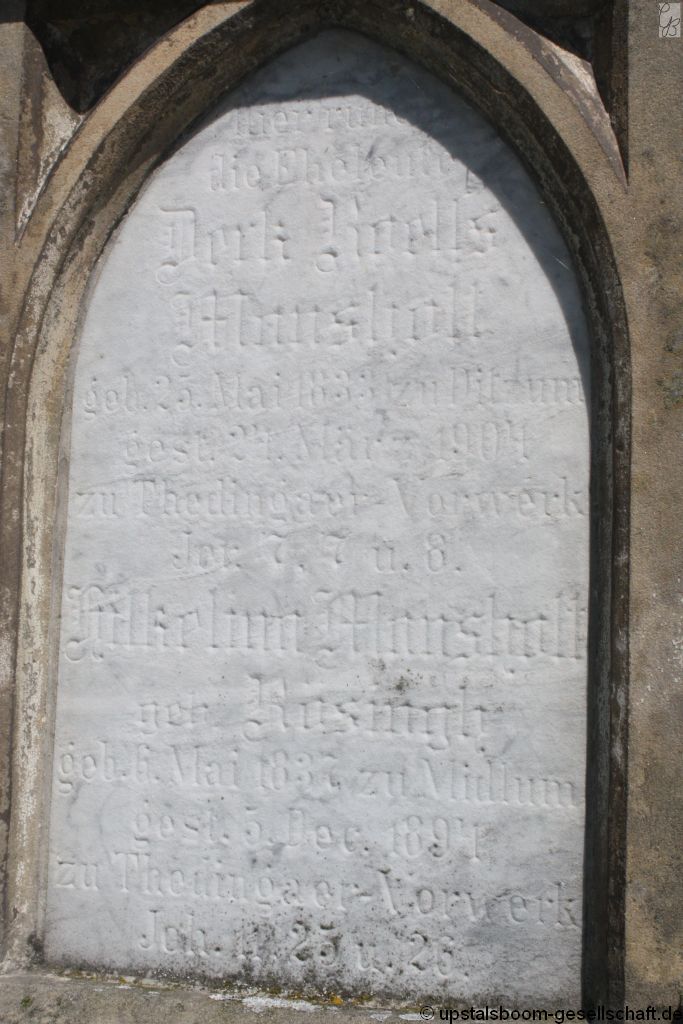 Hier ruhen
die Eheleute
Derk Roelfs
Mansholt
geb. 25. Mai 1833 zu Ditzum
gest. 27. März 1904
zu Thedingaer-Vorwerk
Jer. 7, 7 u. 8.
Hilkelina Mansholt
geb. Rösingh
geb. 6. Mai 1837 zu Midlum
gest. 5. Dec. 1894
zu Thedingaer-Vorwerk
Joh. 11. 25 u. 26.
© upstalsboom-gesellschaft.de